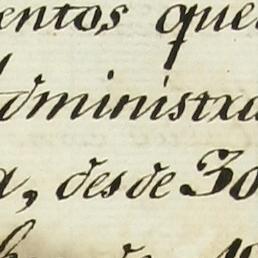 entos que
administra
a, desde 30